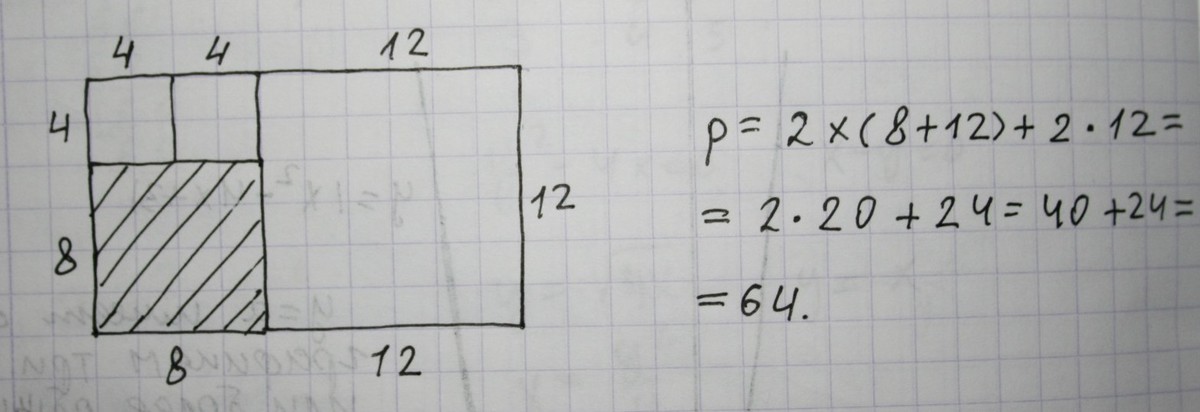 4 4 12
4
12
8
8 12
p = 2 × (8+12) + 2 · 12 =
= 2 · 20 + 24 = 40 + 24 =
= 64.